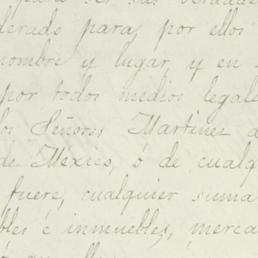 para, por ellos
nombre y lugar, y en
por todos medios legale
los Señores Martinez
de México, ó de cualq
fuere, cualquier suma
bles é inmuebles, merca